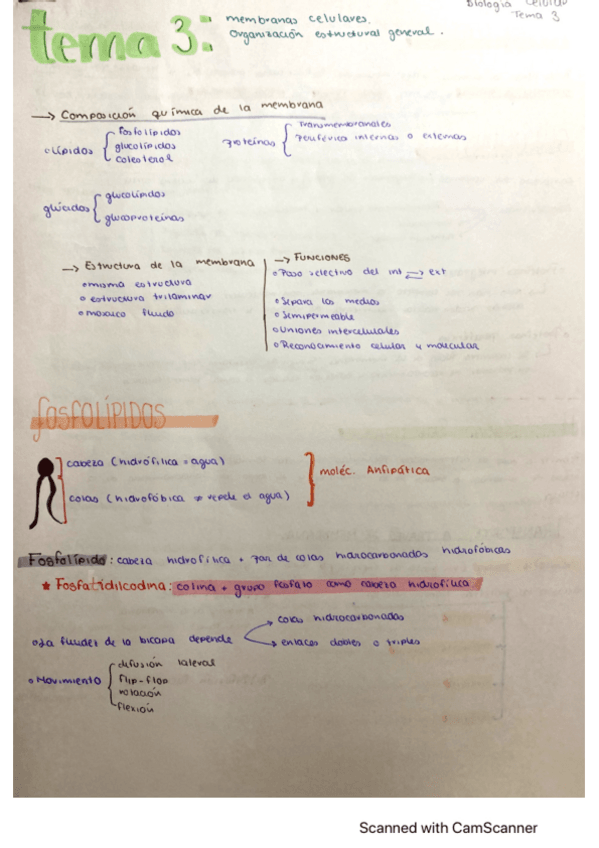 Biología Celular
Tema 3
tema 3:
membranas celulares.
Organización estructural general.
→ Composición química de la membrana
lípidos { fosfolípidos
glucolípidos
colesterol
proteínas { Transmembranales
Periférica internas o externas
glúcidos { glucolípidos
glucoproteínas
→ Estructura de la membrana
misma estructura
estructura trilaminar
mosaico fluido
→ FUNCIONES
Paso selectivo del int ⇄ ext
Separa los medios
Semipermeable
Uniones intercelulares
Reconocimiento celular y molecular
FOSFOLÍPIDOS
cabeza (hidrófilica = agua)
colas (hidrofóbica ≠ repele el agua)
moléc. Anfipática
Fosfolípido: cabeza hidrofílica + par de colas hidrocarbonadas hidrofóbicas
★ Fosfatidilcodina: colina + grupo fosfato como cabeza hidrofílica
La fluidez de la bicapa depende
colas hidrocarbonadas
enlaces dobles o triples
Movimiento { difusión lateral
flip-flop
rotación
flexión
Scanned with CamScanner